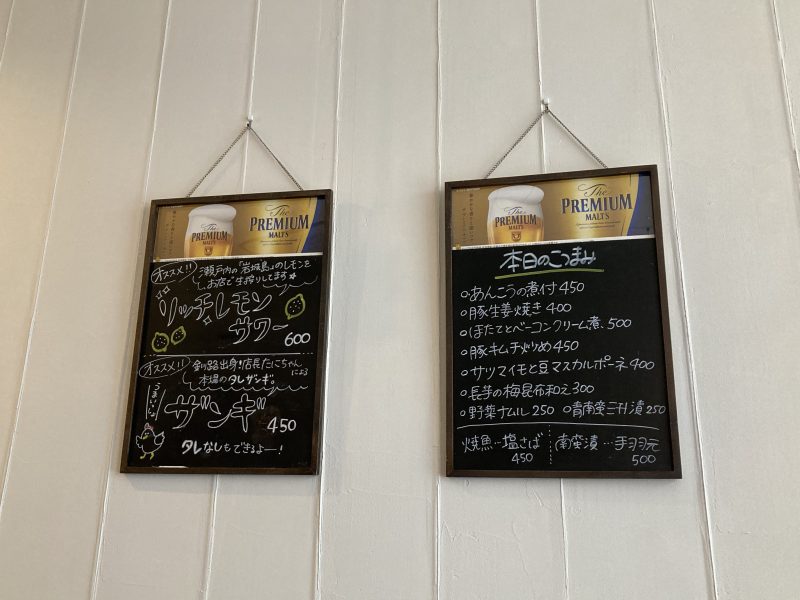 The
PREMIUM
MALT'S
The
PREMIUM
MALT'S
オススメ!! 瀬戸内の「岩城島」のレモンを
お店で生搾りしてます☆
リッチレモン
サワー
600
オススメ!! 釧路出身!店長たにちゃん
による
本場のタレザンギ。
うまいっしょ
ザンギ 450
タレなしもできるよー!
The
PREMIUM
MALT'S
The
PREMIUM
MALT'S
本日のおつまみ
○あんこうの煮付 450
○豚生姜焼き 400
○ほたてとベーコンクリーム煮 500
○豚キムチ炒め 450
○サツマイモと豆マスカルポーネ 400
○長芋の梅昆布和え 300
○野菜ナムル 250 ○青南蛮三升漬 250
焼魚…塩さば
450
南蛮漬…手羽元
500